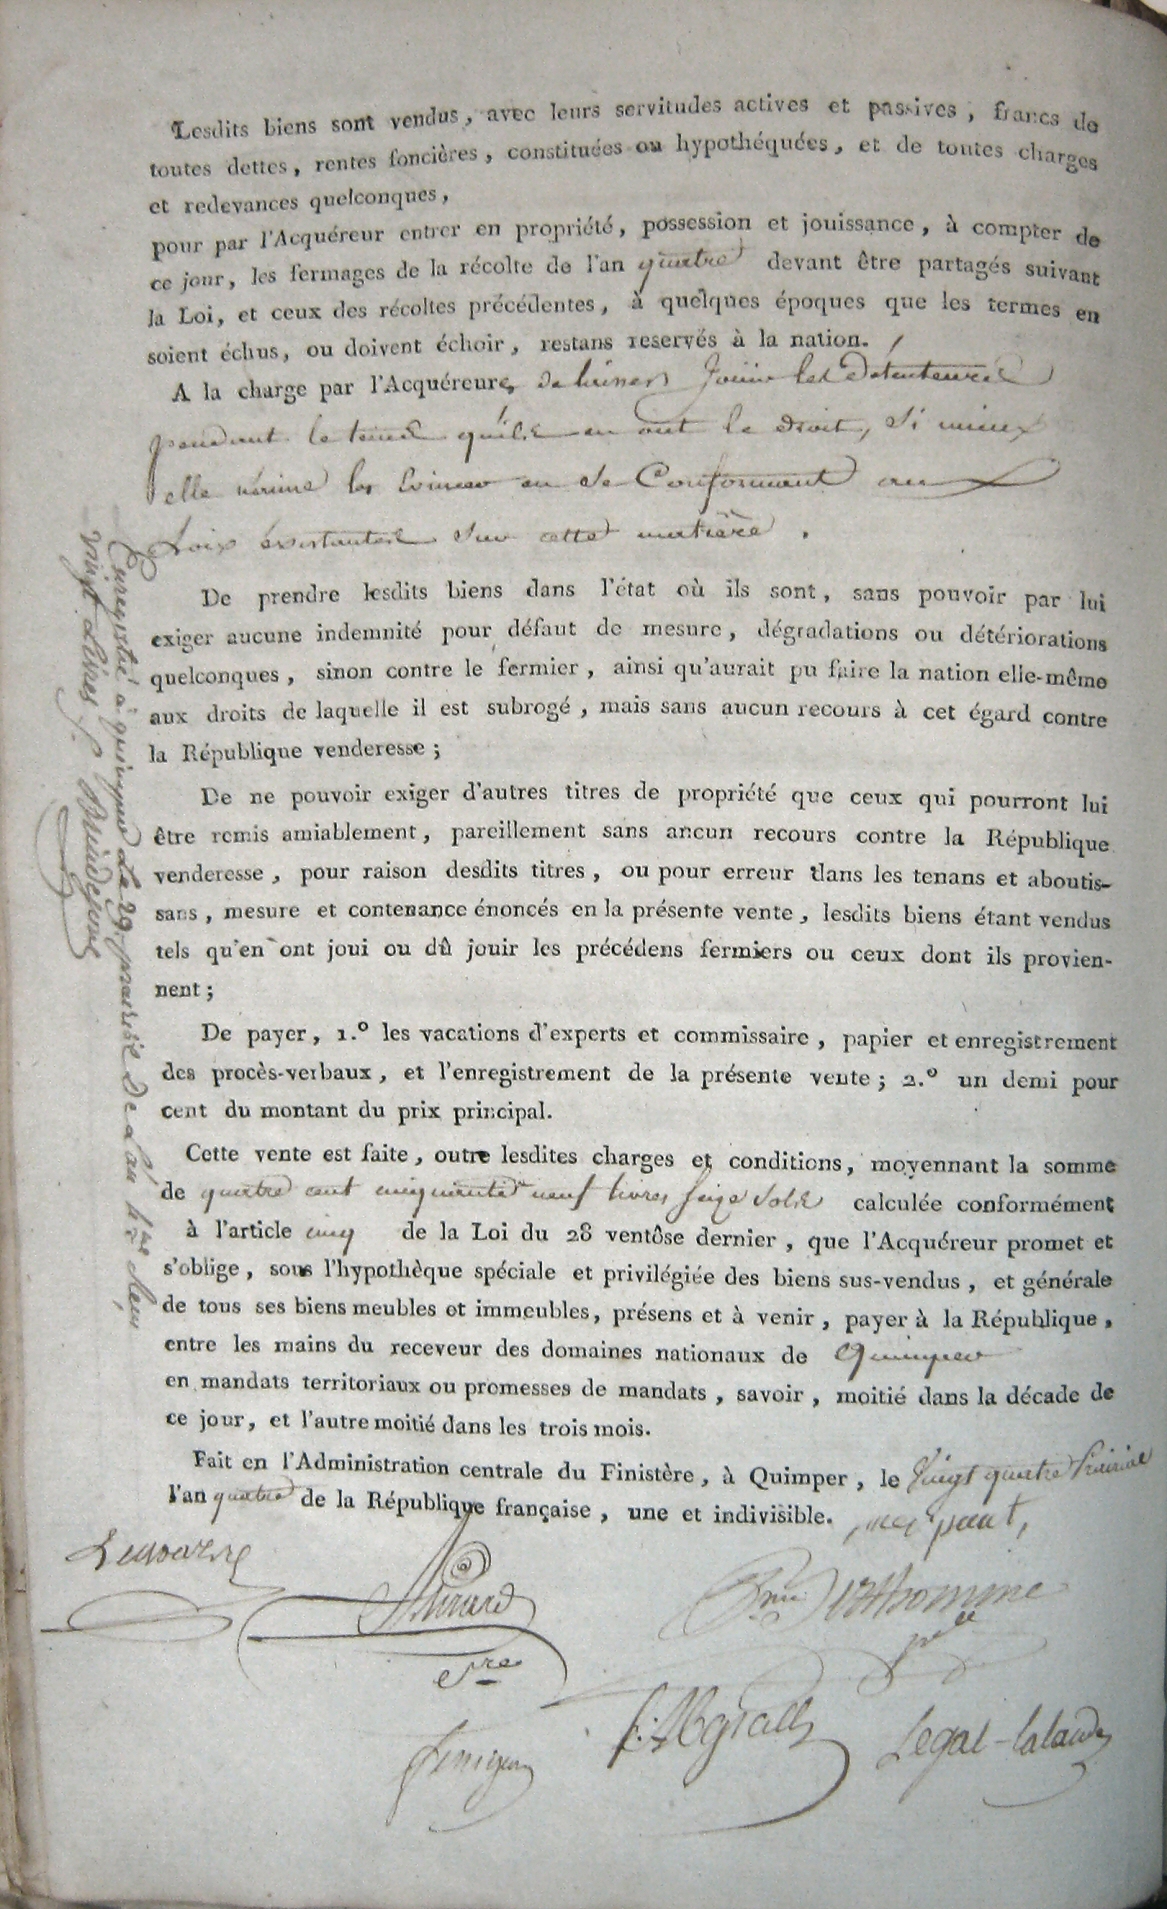 Lesdits biens sont vendus, avec leurs servitudes actives et passives, francs de
toutes dettes, rentes foncières, constituées ou hypothéquées, et de toutes charges
et redevances quelconques,
pour par l'Acquéreur entrer en propriété, possession et jouissance, à compter de
ce jour, les fermages de la récolte de l'an quatre devant être partagés suivant
la Loi, et ceux des récoltes précédentes, à quelques époques que les termes en
soient échus, ou doivent échoir, restans reservés à la nation.
A la charge par l'Acquéreure de laisser Jouir les détenteurs
pendant le tems qu'ils en ont le droit, si mieux
elle n'aime les Evincer en se Conformant aux
Loix existantes sur cette matière.
De prendre lesdits biens dans l'état où ils sont, sans pouvoir par lui
exiger aucune indemnité pour défaut de mesure, dégradations ou détériorations
quelconques, sinon contre le fermier, ainsi qu'aurait pu faire la nation elle-même
aux droits de laquelle il est subrogé, mais sans aucun recours à cet égard contre
la République venderesse;
De ne pouvoir exiger d'autres titres de propriété que ceux qui pourront lui
être remis amiablement, pareillement sans aucun recours contre la République
venderesse, pour raison desdits titres, ou pour erreur dans les tenans et aboutis-
sans, mesure et contenance énoncés en la présente vente, lesdits biens étant vendus
tels qu'en ont joui ou dû jouir les précédens fermiers ou ceux dont ils provien-
nent;
De payer, 1.º les vacations d'experts et commissaire, papier et enregistrement
des procès-verbaux, et l'enregistrement de la présente vente; 2.º un demi pour
cent du montant du prix principal.
Cette vente est faite, outre lesdites charges et conditions, moyennant la somme
de quatre cent cinquante neuf livres seize sols calculée conformément
à l'article cinq de la Loi du 28 ventôse dernier, que l'Acquéreur promet et
s'oblige, sous l'hypothèque spéciale et privilégiée des biens sus-vendus, et générale
de tous ses biens meubles et immeubles, présens et à venir, payer à la République,
entre les mains du receveur des domaines nationaux de Quimper
en mandats territoriaux ou promesses de mandats, savoir, moitié dans la décade de
ce jour, et l'autre moitié dans les trois mois.
Fait en l'Administration centrale du Finistère, à Quimper, le Vingt quatre Prairial
l'an quatre de la République française, une et indivisible.
Enregistré à quimper Le 29 prairial
vingt Livres
Legal-lalande